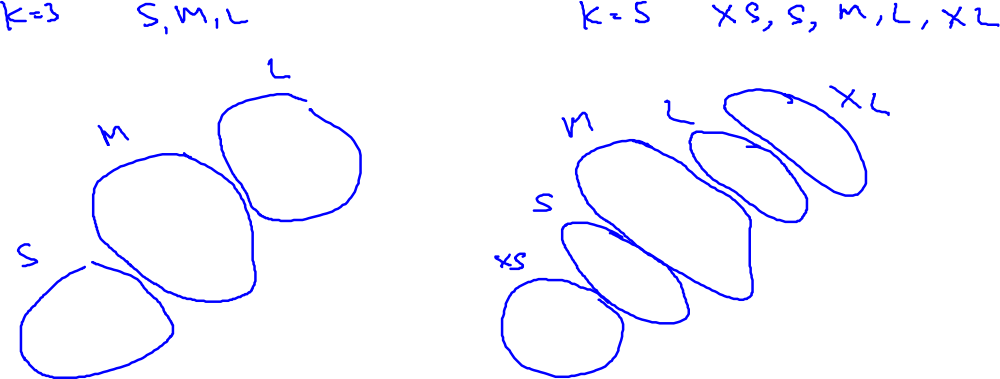 K=3 S, M, L
L
M
S
K=5 XS, S, M, L, XL
XL
L
M
S
XS